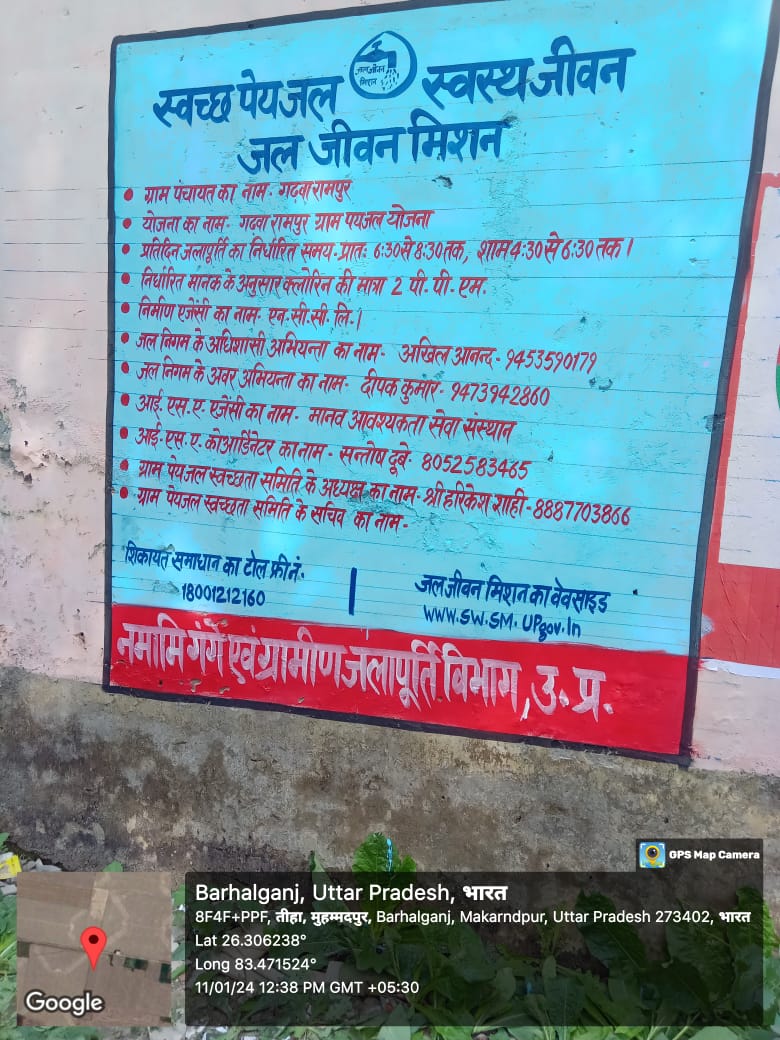 स्वच्छ पेयजल जल जीवन मिशन स्वस्थ जीवन
जल जीवन मिशन
• ग्राम पंचायत का नाम- गढवा रामपुर
• योजना का नाम- गढवा रामपुर ग्राम पयजल योजना
• प्रतिदिन जलापूर्ति का निर्धारित समय-प्रातः 6:30 से 8:30 तक, शाम 4:30 से 6:30 तक।
• निर्धारित मानक के अनुसार क्लोरिन की मात्रा 2 पी. पी. एम.
• निर्माण एजेंसी का नाम- एन. सी. सी. लि.।
• जल निगम के अधिशासी अभियन्ता का नाम- अखिल आनन्द- 9453590179
• जल निगम के अवर अभियन्ता का नाम- दीपक कुमार- 9473942860
• आई. एस. ए. एजेंसी का नाम- मानव आवश्यकता सेवा संस्थान
• आई. एस. ए. कोआर्डिनेटर का नाम- सन्तोष दूबे- 8052583465
• ग्राम पेयजल स्वच्छता समिति के अध्यक्ष का नाम- श्री हरिकेश शाही- 8887703866
• ग्राम पेयजल स्वच्छता समिति के सचिव का नाम-
शिकायत समाधान का टोल फ्री नं.
18001212160
जल जीवन मिशन का वेवसाइड
www.sw.sm.upgov.in
नमामि गंगे एवं ग्रामीण जलापूर्ति विभाग, उ. प्र.
GPS Map Camera
Barhalganj, Uttar Pradesh, भारत
8F4F+PPF, तीहा, मुहम्मदपुर, Barhalganj, Makarndpur, Uttar Pradesh 273402, भारत
Lat 26.306238°
Long 83.471524°
11/01/24 12:38 PM GMT +05:30
Google